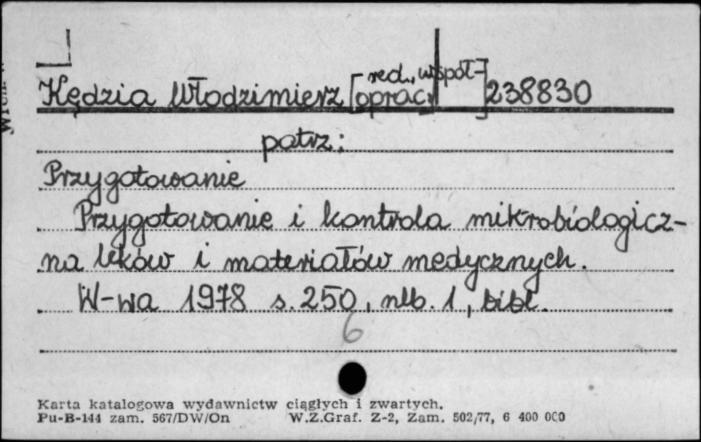 red., współ-
Kędzia Włodzimierz [oprac.] 238830
patrz:
Przygotowanie
Przygotowanie i kontrola mikrobiologicz-
na leków i materiałów medycznych.
W-wa 1978 s. 250, nlb. 1, bibl.
6
Karta katalogowa wydawnictw ciągłych i zwartych.
Pu-B-144 zam. 567/DW/On W.Z.Graf. Z-2, Zam. 502/77, 6 400 000